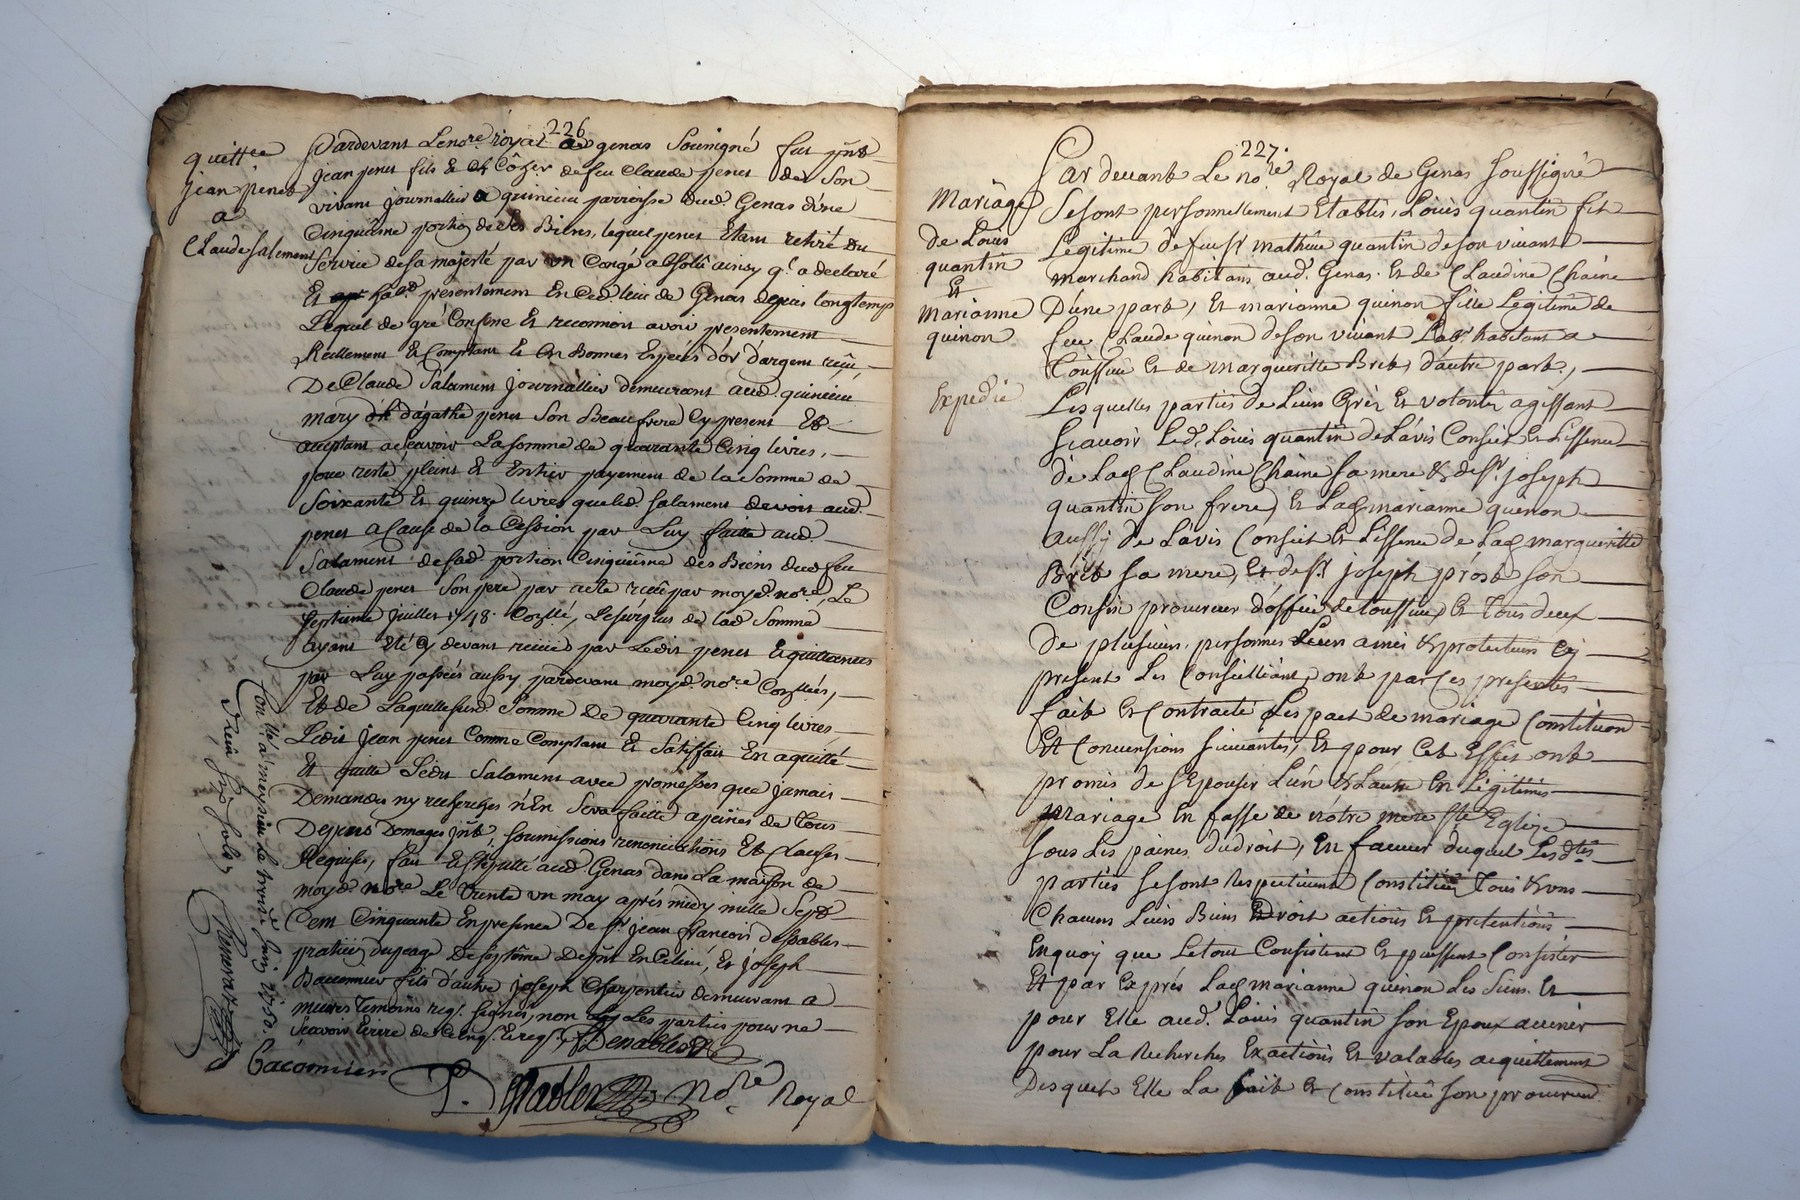 226
quittce
jean penet
a
Claude Salament
Pardevant Le nore royal a genas Soussigné fut pñt
jean penet fils & de feu Claude penet de Son
vivant journallier a quincieu parroisse dud. Genas d'une
Cinquième portion de ses Biens, lequel penet Etant retiré du
Service de sa majesté par un Congé absolü ainsy q. a declaré
Et presentement En ced. lieu de Genas depuis longtemps
Lequel de gré Confesse Et reconnoit avoir presentement
Reellement & Comptant Et En Bonnes Especes d'or d'argent reçû
De Claude Salament journallier demeurant aud. quincieu
mary d'agathe penet Son Beau frere Cy present Et
acceptant a Scavoir La somme de quarante Cinq livres,
pour reste plein & Entier payement de la Somme de
Soixante Et quinze livres que led. Salament devoit aud.
penet a Cause de la Cession par Luy faitte aud
Salament de sad. portion Cinquième des Biens dud feu
Claude penet Son pere par acte receu par moyd. nore, Le
septieme Juillet 1748. Conllé, Le surplus de lad Somme
ayant Eté Cy devant receüe par Ledit penet Equittances
par Luy passées aussy pardevant moyd. nore Conllées,
Et de Laquelle susd. Somme de quarante Cinq livres
Ledit Jean penet Comme Comptant Et Satisfait En aquitté
Et quitte Ledit Salament avec promesses que jamais
Demandes ny recherches n'En Sera faitte apeines de Tous
Depens Domages jnts, Soumissions renonciations Et Clauses
Requises, fait aud. Genas dans La maison de
moyd nore Le Trente un may après midy mille Sept
Cent Cinquante En presence De Sr. jean francois desSables
praticien De Septême, Et joseph
Baconnier fils d'autre joseph Charpentier demeurant a
temoins req. Signés, non Les parties pour ne
Scavoir Ecrire de Ce Enq. Et req.
Baconnier
Nore Royal
Con llé a meyzieu Le
227.
Mariage
de Louis
quantin
Et
Marianne
quinon
Expedié
Par devant Le nore Royal de Genas Soussigné
Se sont personnellement Etablis, Louis quantin fils
Legitime de feu Sr. mathieu quantin de son vivant
marchand habitant aud. Genas. Et de Claudine Chaine
D'une part, Et marianne quinon fille Legitime de
feu Claude quinon de son vivant Labr. habitant a
Toussieu Et de margueritte Bret, d'autre part,
Lesquelles parties de Leurs Grés Et volontés agissant
Scavoir Led. Louis quantin de L'avis Conseil Et Lissence
de Lad Claudine Chaine Sa mere & de Sr. joseph
quantin Son frere, Et Lad marianne quinon
aussy de L'avis Conseil Et Lissence de Lad margueritte
Bret Sa mere, Et de Sr. joseph prost Son
Cousin procureur d'office de toussieu, Et Tous deux
De plusieurs personnes Leurs amis & protecteurs Cy
present Les Conseilliant, ont par Ces presentes
fait Et Contracté Les pact de mariage Constitution
Et Convensions Suivantes, Et pour Cet Effet ont
promis de S'Epouser L'un & L'autre En Legitime
Mariage En fasse de nôtre mere Ste Eglise
Sous Les peines du droit, En faveur duquel Lesdtes
parties Se sont Respectivement Constitué Tous & uns
Chacuns Leurs Biens Droit actions Et pretentions
Enquoy que Le tout Consistent Et puissent Consister
Et par Exprés Lad marianne quinon Les Siens. Et
pour Elle aud. Louis quantin Son Epoux avenir
pour La Recherches Exactions Et valables acquittement
Desquels Elle La fait Et Constitué Son procureur